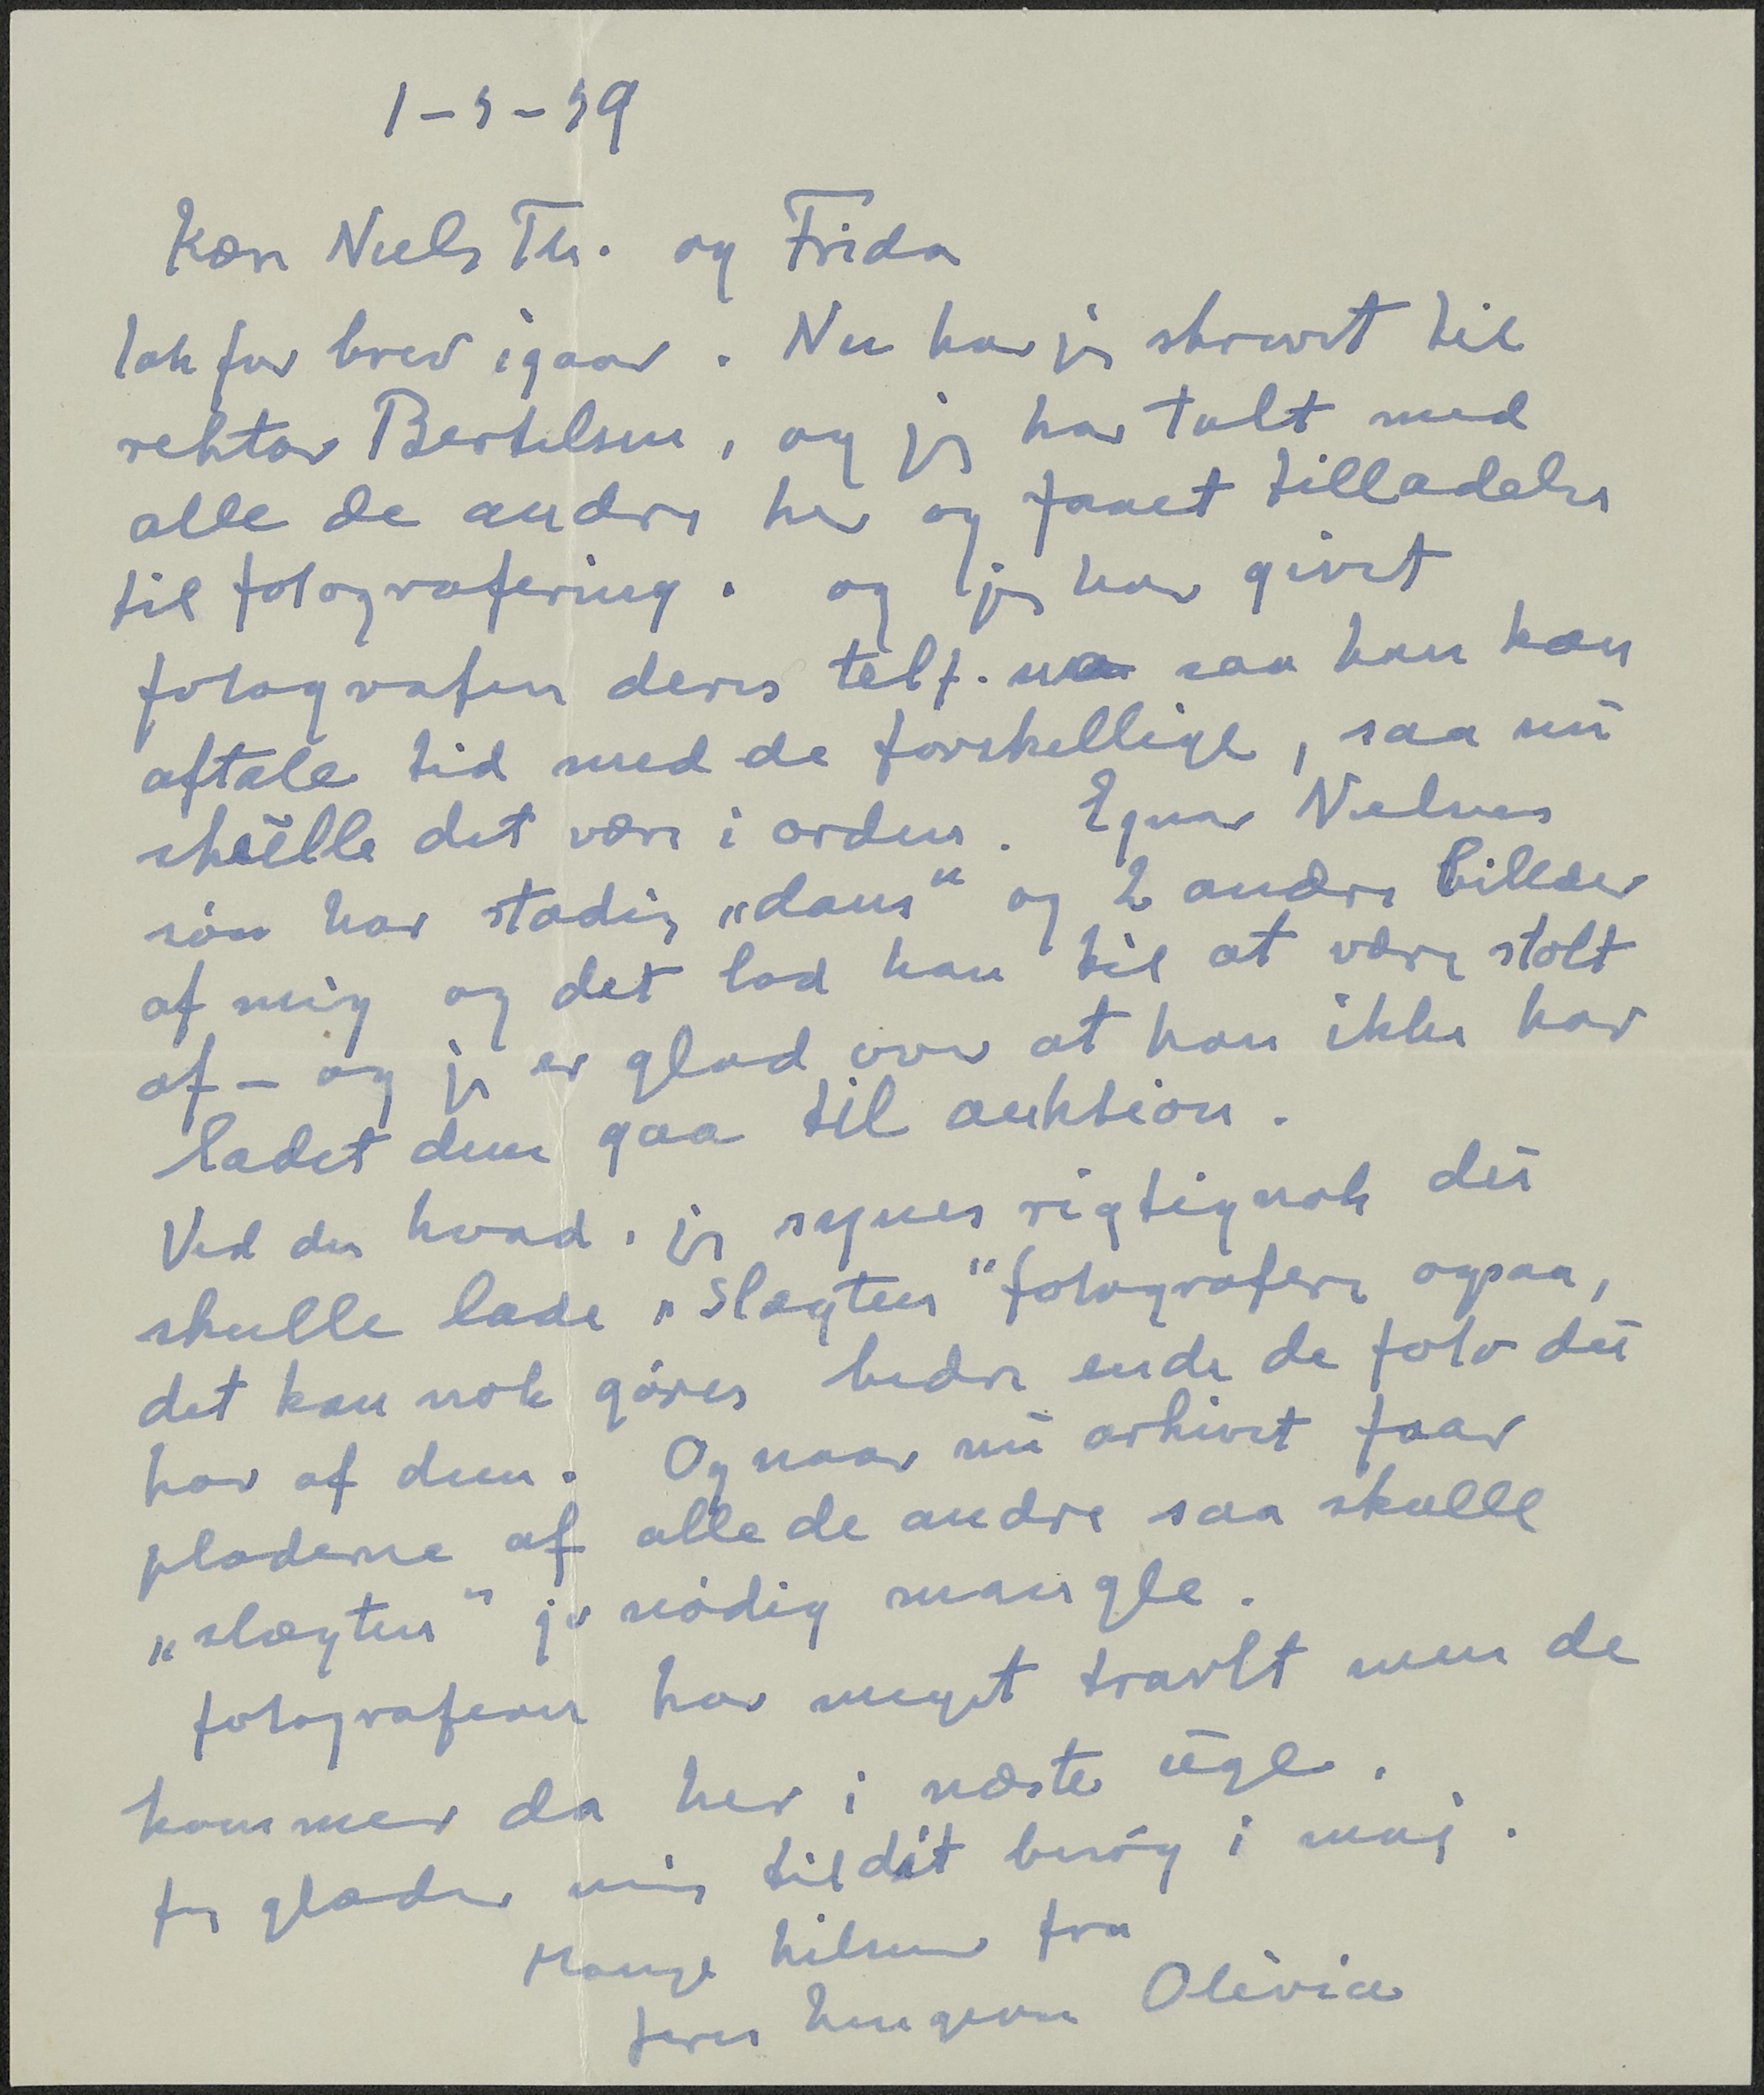 1-5-59
Kære Niels Th. og Frida
tak for brev igaar. Nu har jeg skrevet til
rektor Bertelsen, og jeg har talt med
alle de andre her og faaet tilladelse
til fotografering. og jeg har givet
fotografen deres telf. saa han kan
aftale tid med de forskellige, saa nu
skulle det være i orden. Egnar Nielsens
søn har stadig „dans“ og 2 andre billeder
af mig og det lod han til at være stolt
af - og jeg er glad over at han ikke har
ladet dem gaa til auktion.
Ved du hvad, jeg synes rigtignok du
skulle lade „Slægten“ fotografere ogsaa,
det kan nok gøres bedre ende de foto du
har af dem. Og naar nu arkivet faar
pladerne af alle de andre saa skulle
„slægten“ jo nødig mangle.
fotografean har meget travlt men de
kommer da her i næste uge.
Jeg glæder mig til dit besøg i maj.
Mange hilsner fra
Jeres hengivne Olivia